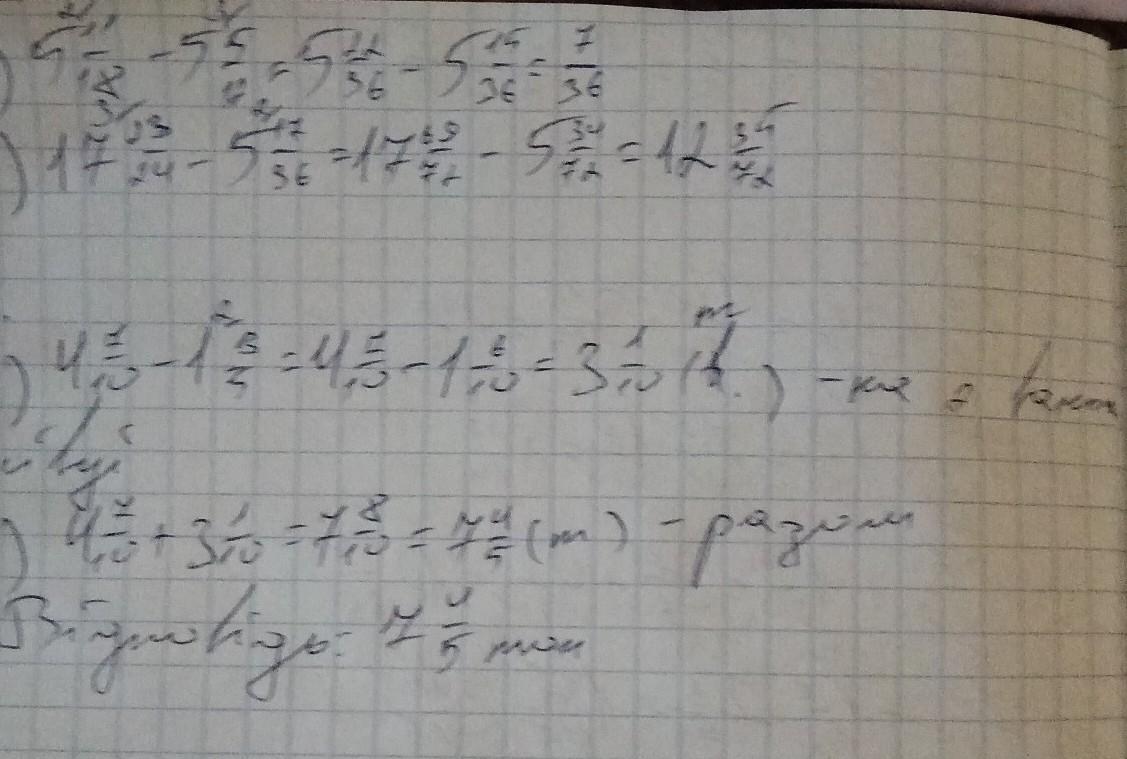 ) 5 11/18 - 5 5/7 = 5 22/36 - 5 15/36 = 7/36
) 17 23/24 - 5 17/36 = 17 69/72 - 5 34/72 = 12 35/72
) 4 7/10 - 1 3/5 = 4 7/10 - 1 6/10 = 3 1/10 (т.) - на
) 4 7/10 + 3 1/10 = 7 8/10 = 7 4/5 (т) - разом
Відповідь: 7 4/5 тон